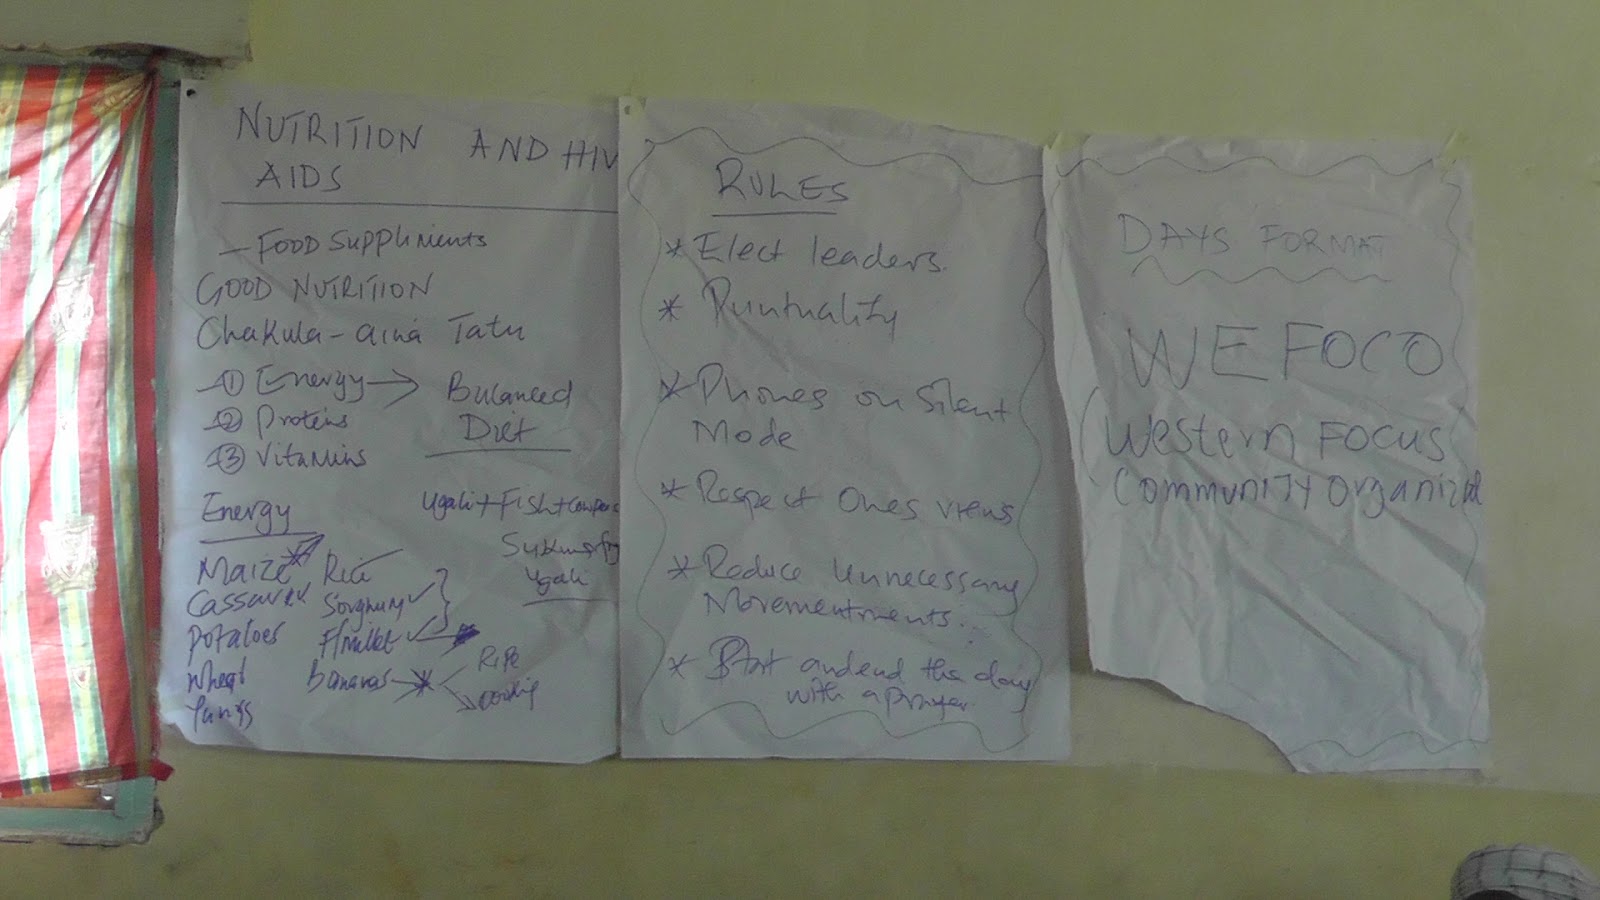 NUTRITION AND HIV
AIDS
- FOOD Suppliments
GOOD NUTRITION
Chakula - aina Tatu
① Energy → Balanced
Diet
② Proteins
③ Vitamins
Energy
Ugali + Fish +
Ugali
Maize Rice
Cassava Sorghum
Potatoes F/millet
Wheat Bananas Ripe
Yams
RULES
* Elect leaders.
* Puntuality
* Phones on Silent
Mode
* Respect Ones views
* Reduce Unnecessary
Movementments...
* Start and end the day
with a prayer.
DAYS FORMAT
WEFOCO
Western FOCUS
Community Organizat